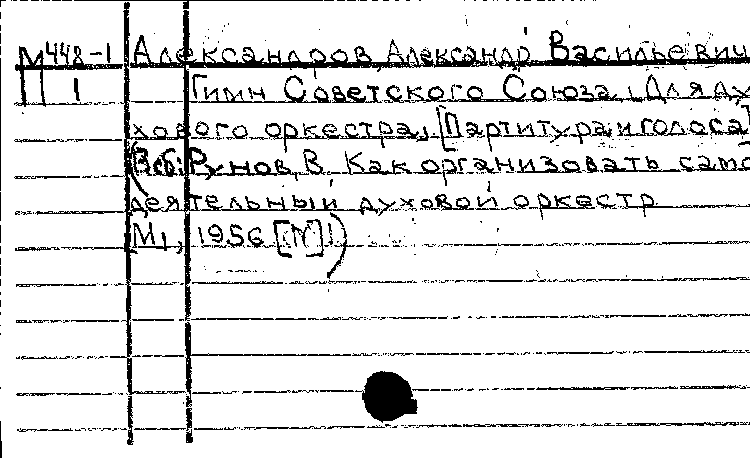 М448-1 Александров, Александр Васильевич
1 Гимн Советского Союза. Для ду-
хового оркестра. [Партитура и голоса]
(В сб.: Рунов, В. Как организовать само-
деятельный духовой оркестр
М., 1956